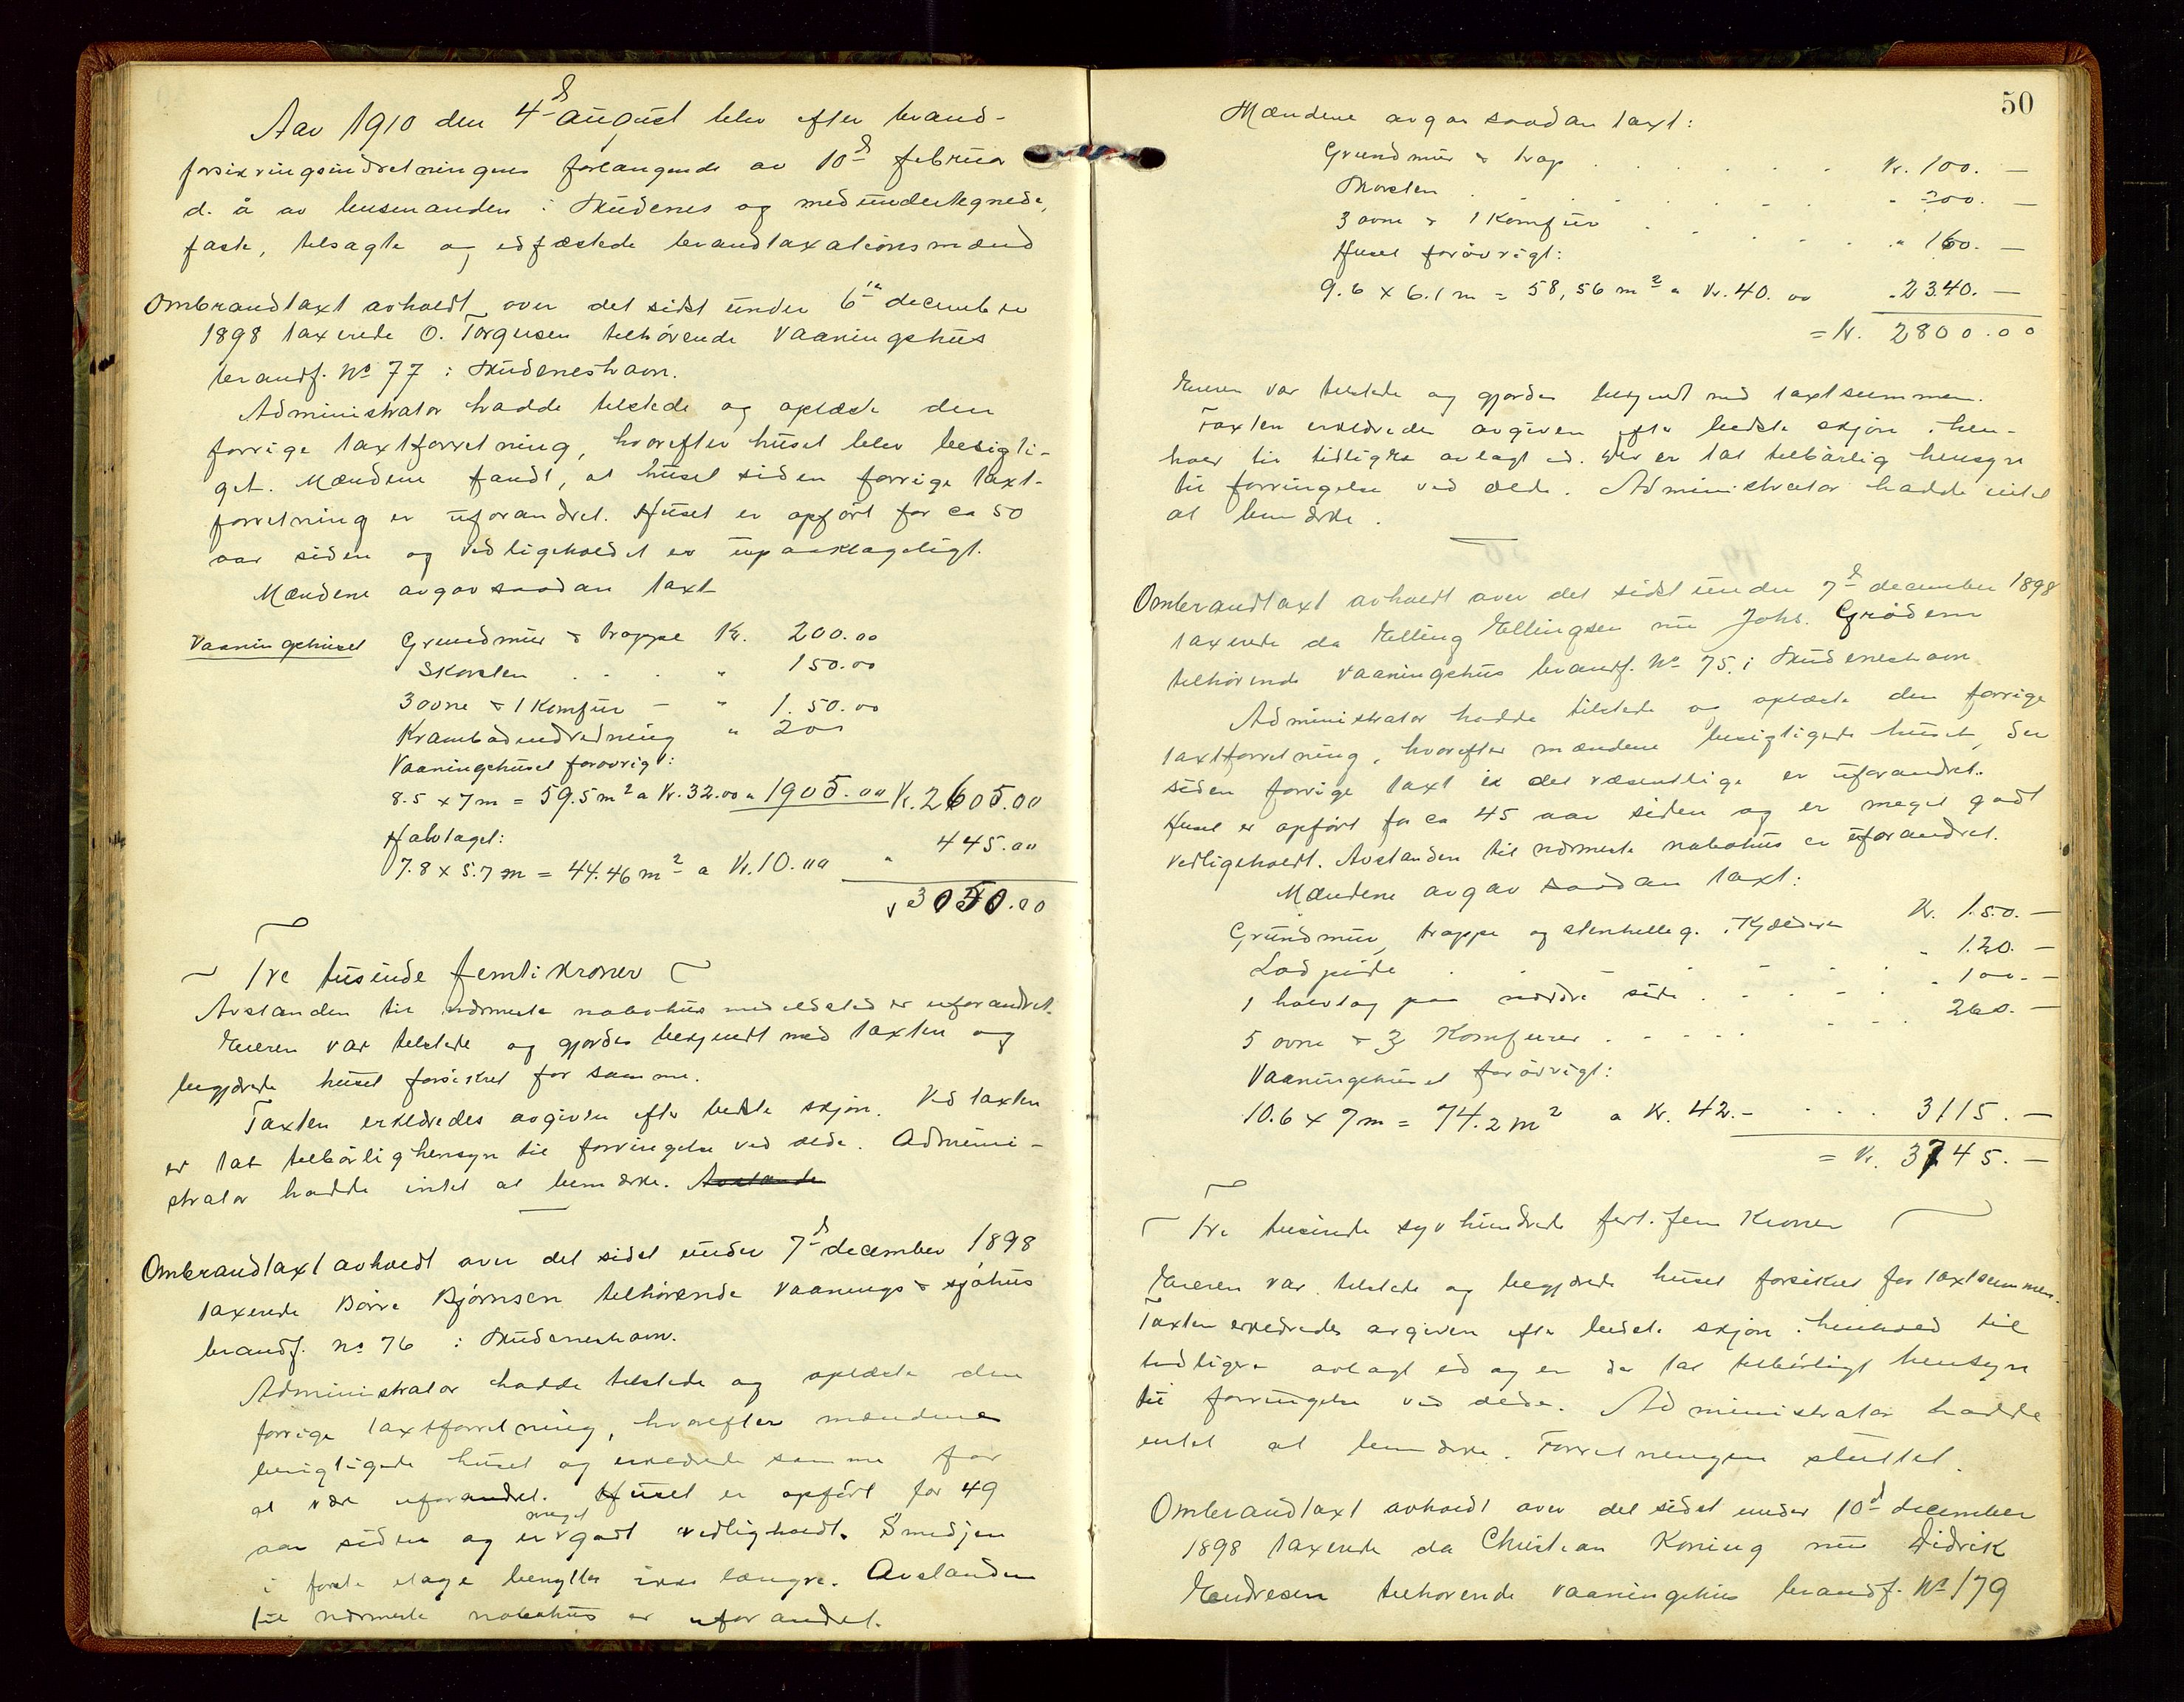 Aar 1910 den 4d august blev efter brand-
forsikringsindretningens forlangende av 10d februar
d. å av lensmanden i Skudenes og medundertegnede,
faste, tilsagte og edfæstede brandtaxationsmænd
Ombrandtaxt avholdt over det sidst under 6te december
1898 taxerede O. Torgersen tilhørende Vaaningshus
brandf. No 77 i Skudeneshavn.
Administrator hadde tilstede og oplæste den
forrige taxtforretning, hvorefter huset blev besigti-
get. Mændene fandt, at huset siden forrige taxt-
forretning er uforandret. Huset er opført for ca 50
aar siden og vedligeholdet er upaaklageligt.
Mændene avgav saadan taxt
Vaaningshuset Grundmur & trappe Kr. 200.00
Skorsten . . . " 150.00
3 ovne & 1 Komfur - " 1.50.00
Krambodindredning " 200
Vaaningshuset forøvrigt:
8.5 x 7 m = 59.5 m2 a Kr. 32.00 " 1905.00 Kr. 2605.00
Halvtaget:
7.8 x 5.7 m = 44.46 m2 a Kr. 10.00 " 445.00
3050.00
Tre tusinde femti kroner
Avstanden til nærmeste nabohus med ildsted er uforandret.
Eieren var tilstede og gjordes bekjendt med taxten og
begjærede huset forsikret for samme.
Taxten erklæredes avgiven efter bedste skjøn. Ved taxten
er tat tilbørlig hensyn til forringelse ved ælde. Admini-
strator hadde intet at bemærke. Avstande
Ombrandtaxt avholdt over det sidst under 7d december 1898
taxerede Børre Bjørnsen tilhørende Vaanings & sjøhus
brandf. no 76 i Skudeneshavn.
Administrator hadde tilstede og oplæste den
forrige taxtforretning, hvorefter mændene
besigtigede huset og erklærede samme for
at være uforandret. Huset er opført for 49
aar siden og er meget godt vedligholdt. Smedjen
i første etage benyttes ikke længre. Avstanden
til nærmeste nabohus er uforandret.
50
Mændene avgav saadan taxt:
Grundmur & trap . . . . . . Kr. 100. —
Skorsten . . . . . . " 200. —
3 ovne & 1 Komfur . . . . . " 160. —
Huset forøvrigt:
9.6 x 6.1 m = 58,56 m2 a Kr. 40.00 " 2340. —
= Kr. 2800.00
Eieren var tilstede og gjordes bekjendt med taxtsummen.
Taxten erklæredes avgiven efter bedste skjøn i hen-
hold til tidligere avlagt ed. Der er tat tilbørlig hensyn
til forringelse ved ælde. Administrator hadde intet
at bemærke.
Ombrandtaxt avholdt over det sidst under 7d december 1898
taxerede da Elling Ellingsen nu Johs. Grødem
tilhørende Vaaningshus brandf. No 75 i Skudeneshavn
Administrator hadde tilstede og oplæste den forrige
taxtforretning, hvorefter mændene besigtigede huset, der
siden forrige taxt i det væsentlige er uforandret.
Huset er opført for ca 45 aar siden og er meget godt
vedligeholdt. Avstanden til nærmeste nabohus er uforandret.
Mændene avgav saadan taxt:
Grundmur, trappe og stenhelleg. i Kjælderen Kr. 1.50. —
Ladpibe . . . . . . " 1.20. —
1 halvtag paa nordre side . . . . " 100. —
5 ovne & 3 Komfurer . . . . . 260. —
Vaaningshuset forøvrigt:
10.6 x 7 m = 74.2 m2 a Kr. 42.- . . . 3115. —
= Kr. 3745. —
Tre tusinde syv hundrede førti fem Kroner
Eieren var tilstede og begjærede huset forsikret for taxtsummen.
Taxten erklæredes avgiven efter bedste skjøn i henhold til
tidligere avlagt ed og er der tat tilbørligt hensyn
til forringelse ved ælde. Administrator hadde
intet at bemærke. Forretningen sluttet.
Ombrandtaxt avholdt over det sidst under 10d december
1898 taxerede da Christian Koning nu Didrik
Endresen tilhørende vaaningshus brandf. No 179